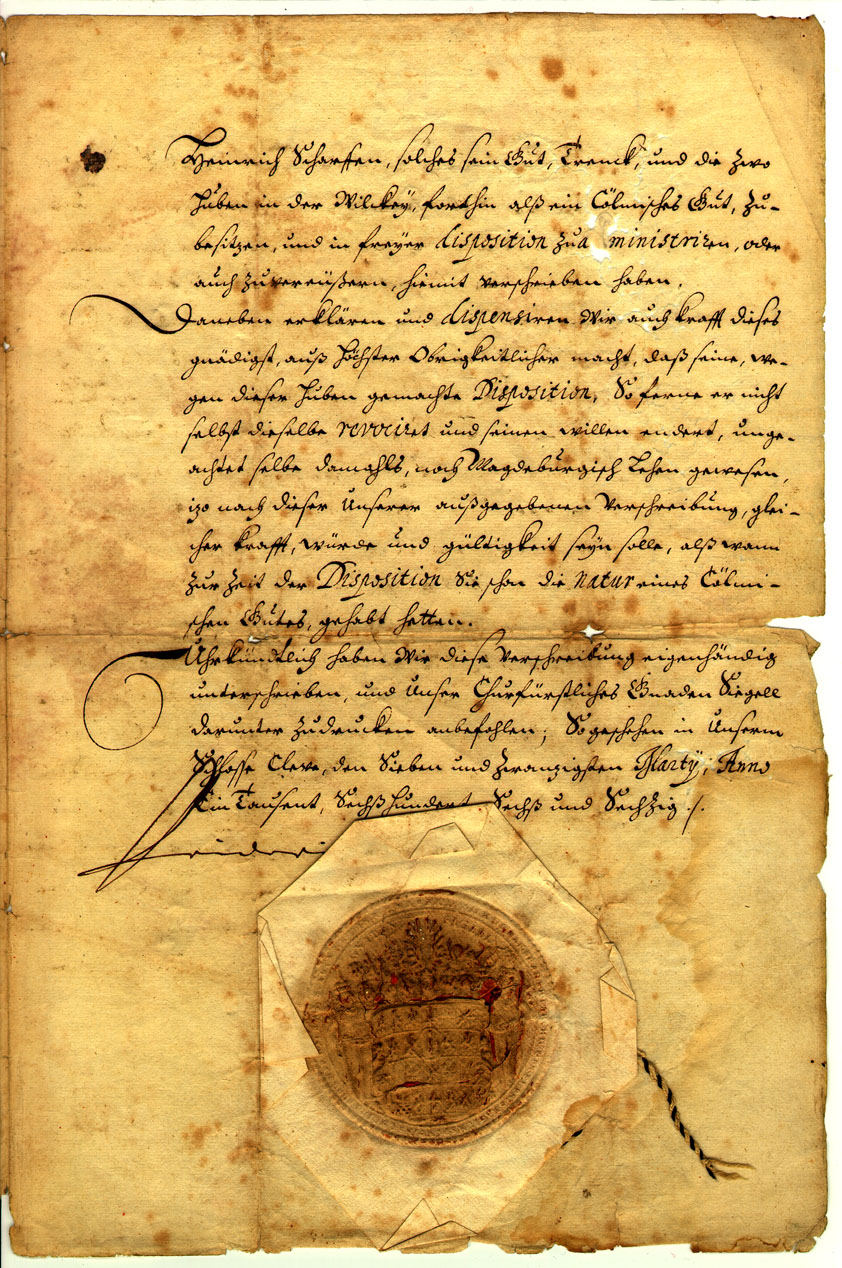 Heinrich Scharffen, solches sein Gut, Trenck, und die zwo
Huben in der Wilckey, forthin alß ein Cölmisches Gut, zu-
besitzen, und in freyer disposition zu a ministriren, oder
auch zuvereüßern, hiemit verschrieben haben.
Daneben erklären und dispensiren Wir auch krafft dieses
gnädigst, auß Höchster Obrigkeitlicher macht, daß seine, we-
gen dieser Huben gemachte Disposition, So ferne er nicht
selbst dieselbe revociret und seinen willen endert, unge-
achtet selbe damahls, noch Magdeburgisch Lehen gewesen,
izo nach dieser Unserer außgegebenen Verschreibung, glei-
cher krafft, würde und gültigkeit seyn solle, alß wann
zur Zeit der Disposition Sie schon die natur eines Cölmi-
schen Gutes, gehabt hetten.
Uhrkündtlich haben Wir diese Verschreibung eigenhändig
unterschrieben, und Unser Churfürstliches Gnaden Siegell
darunter zudrucken anbefohlen; So geschehen in Unserm
Schlosse Cleve, den Sieben und Zwanzigsten Marty, Anno
Ein Tausent, Sechß hundert Sechß und Sechzig ./.